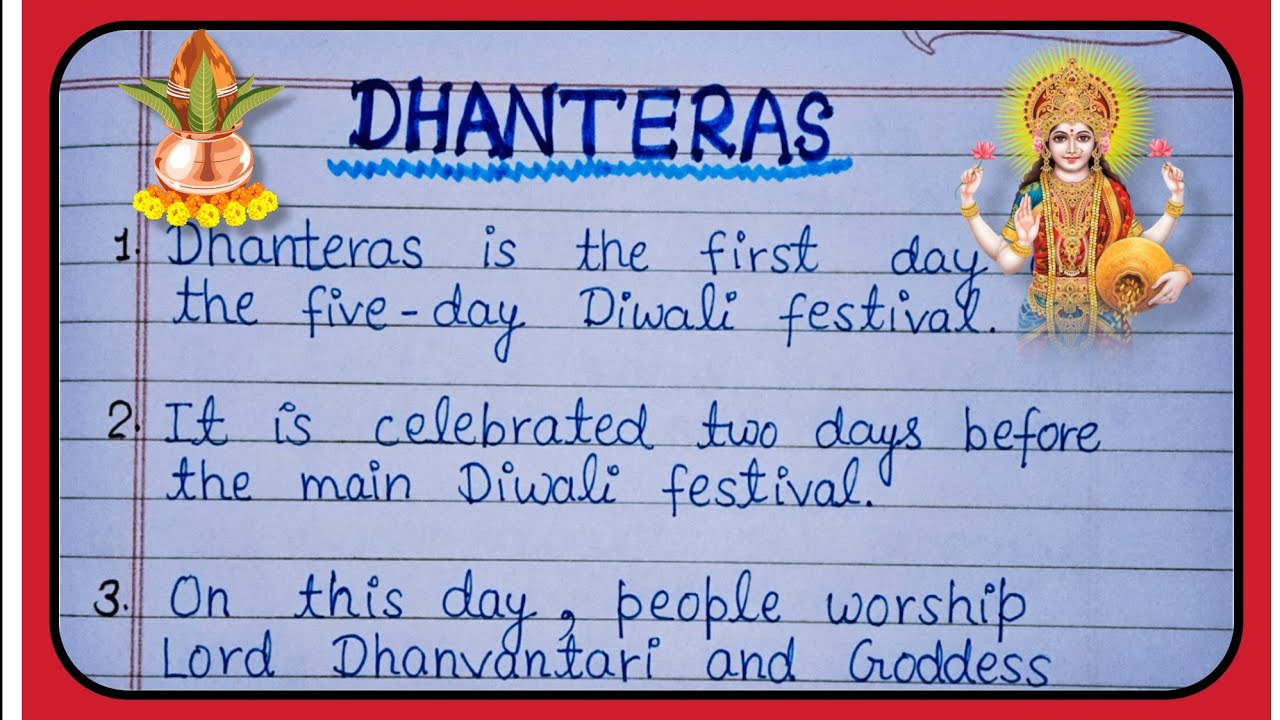 DHANTERAS
1. Dhanteras is the first day
the five-day Diwali festival.
2. It is celebrated two days before
the main Diwali festival.
3. On this day, people worship
Lord Dhanvantari and Goddess